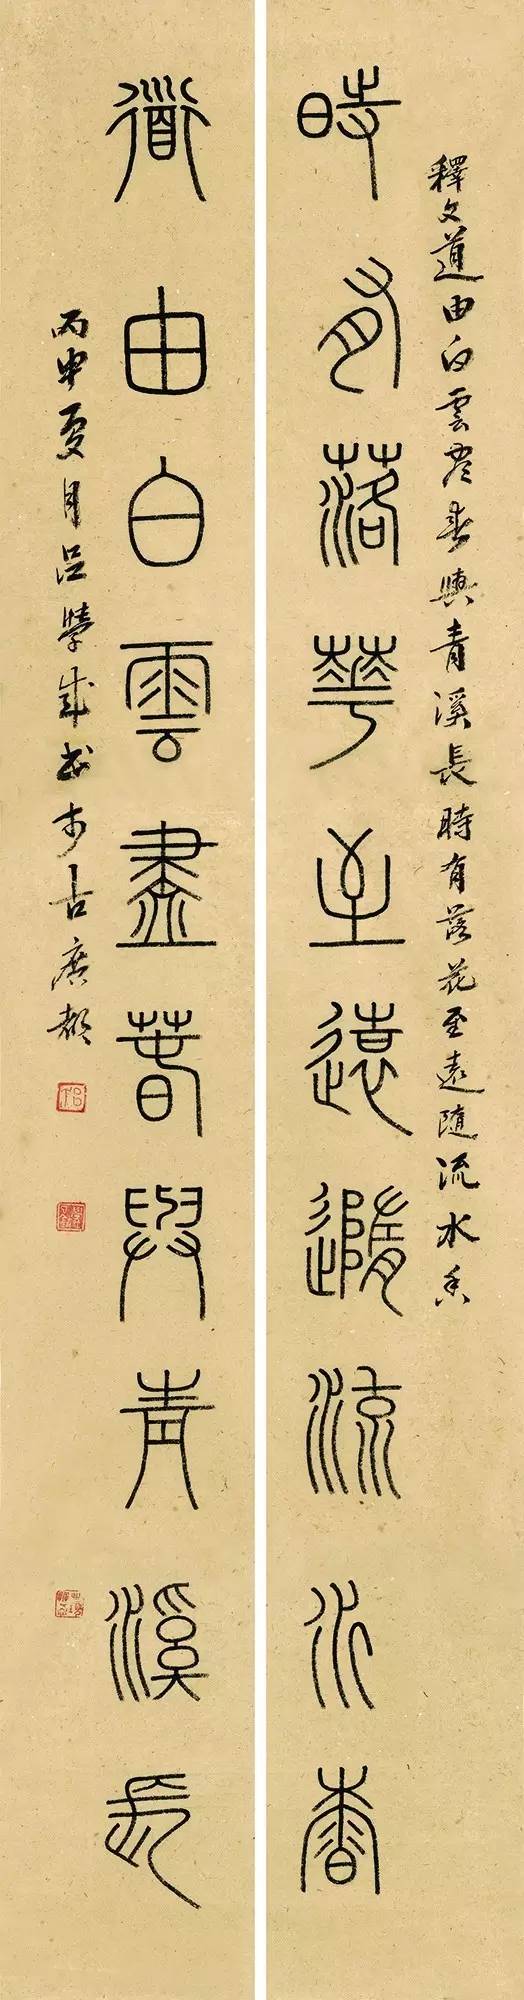 釋文道由白雲盡春與青溪長時有落花至遠隨流水香
時有落華至遠隨流水香
道由白雲盡春與青溪長
丙申夏月呂學成書於古廣都